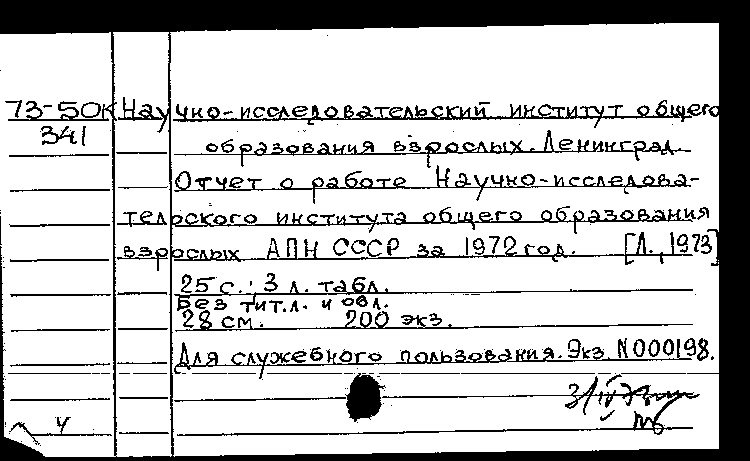 73-50К Научно-исследовательский институт общего
341
образования взрослых. Ленинград.
Отчет о работе Научно-исследова-
тельского института общего образования
взрослых АПН СССР за 1972 год. [Л., 1973]
25 с.; 3 л. табл.
Без тит.л. и обл.
28 см. 200 экз.
Для служебного пользования. Экз. N000198.
3/IV 73
ч